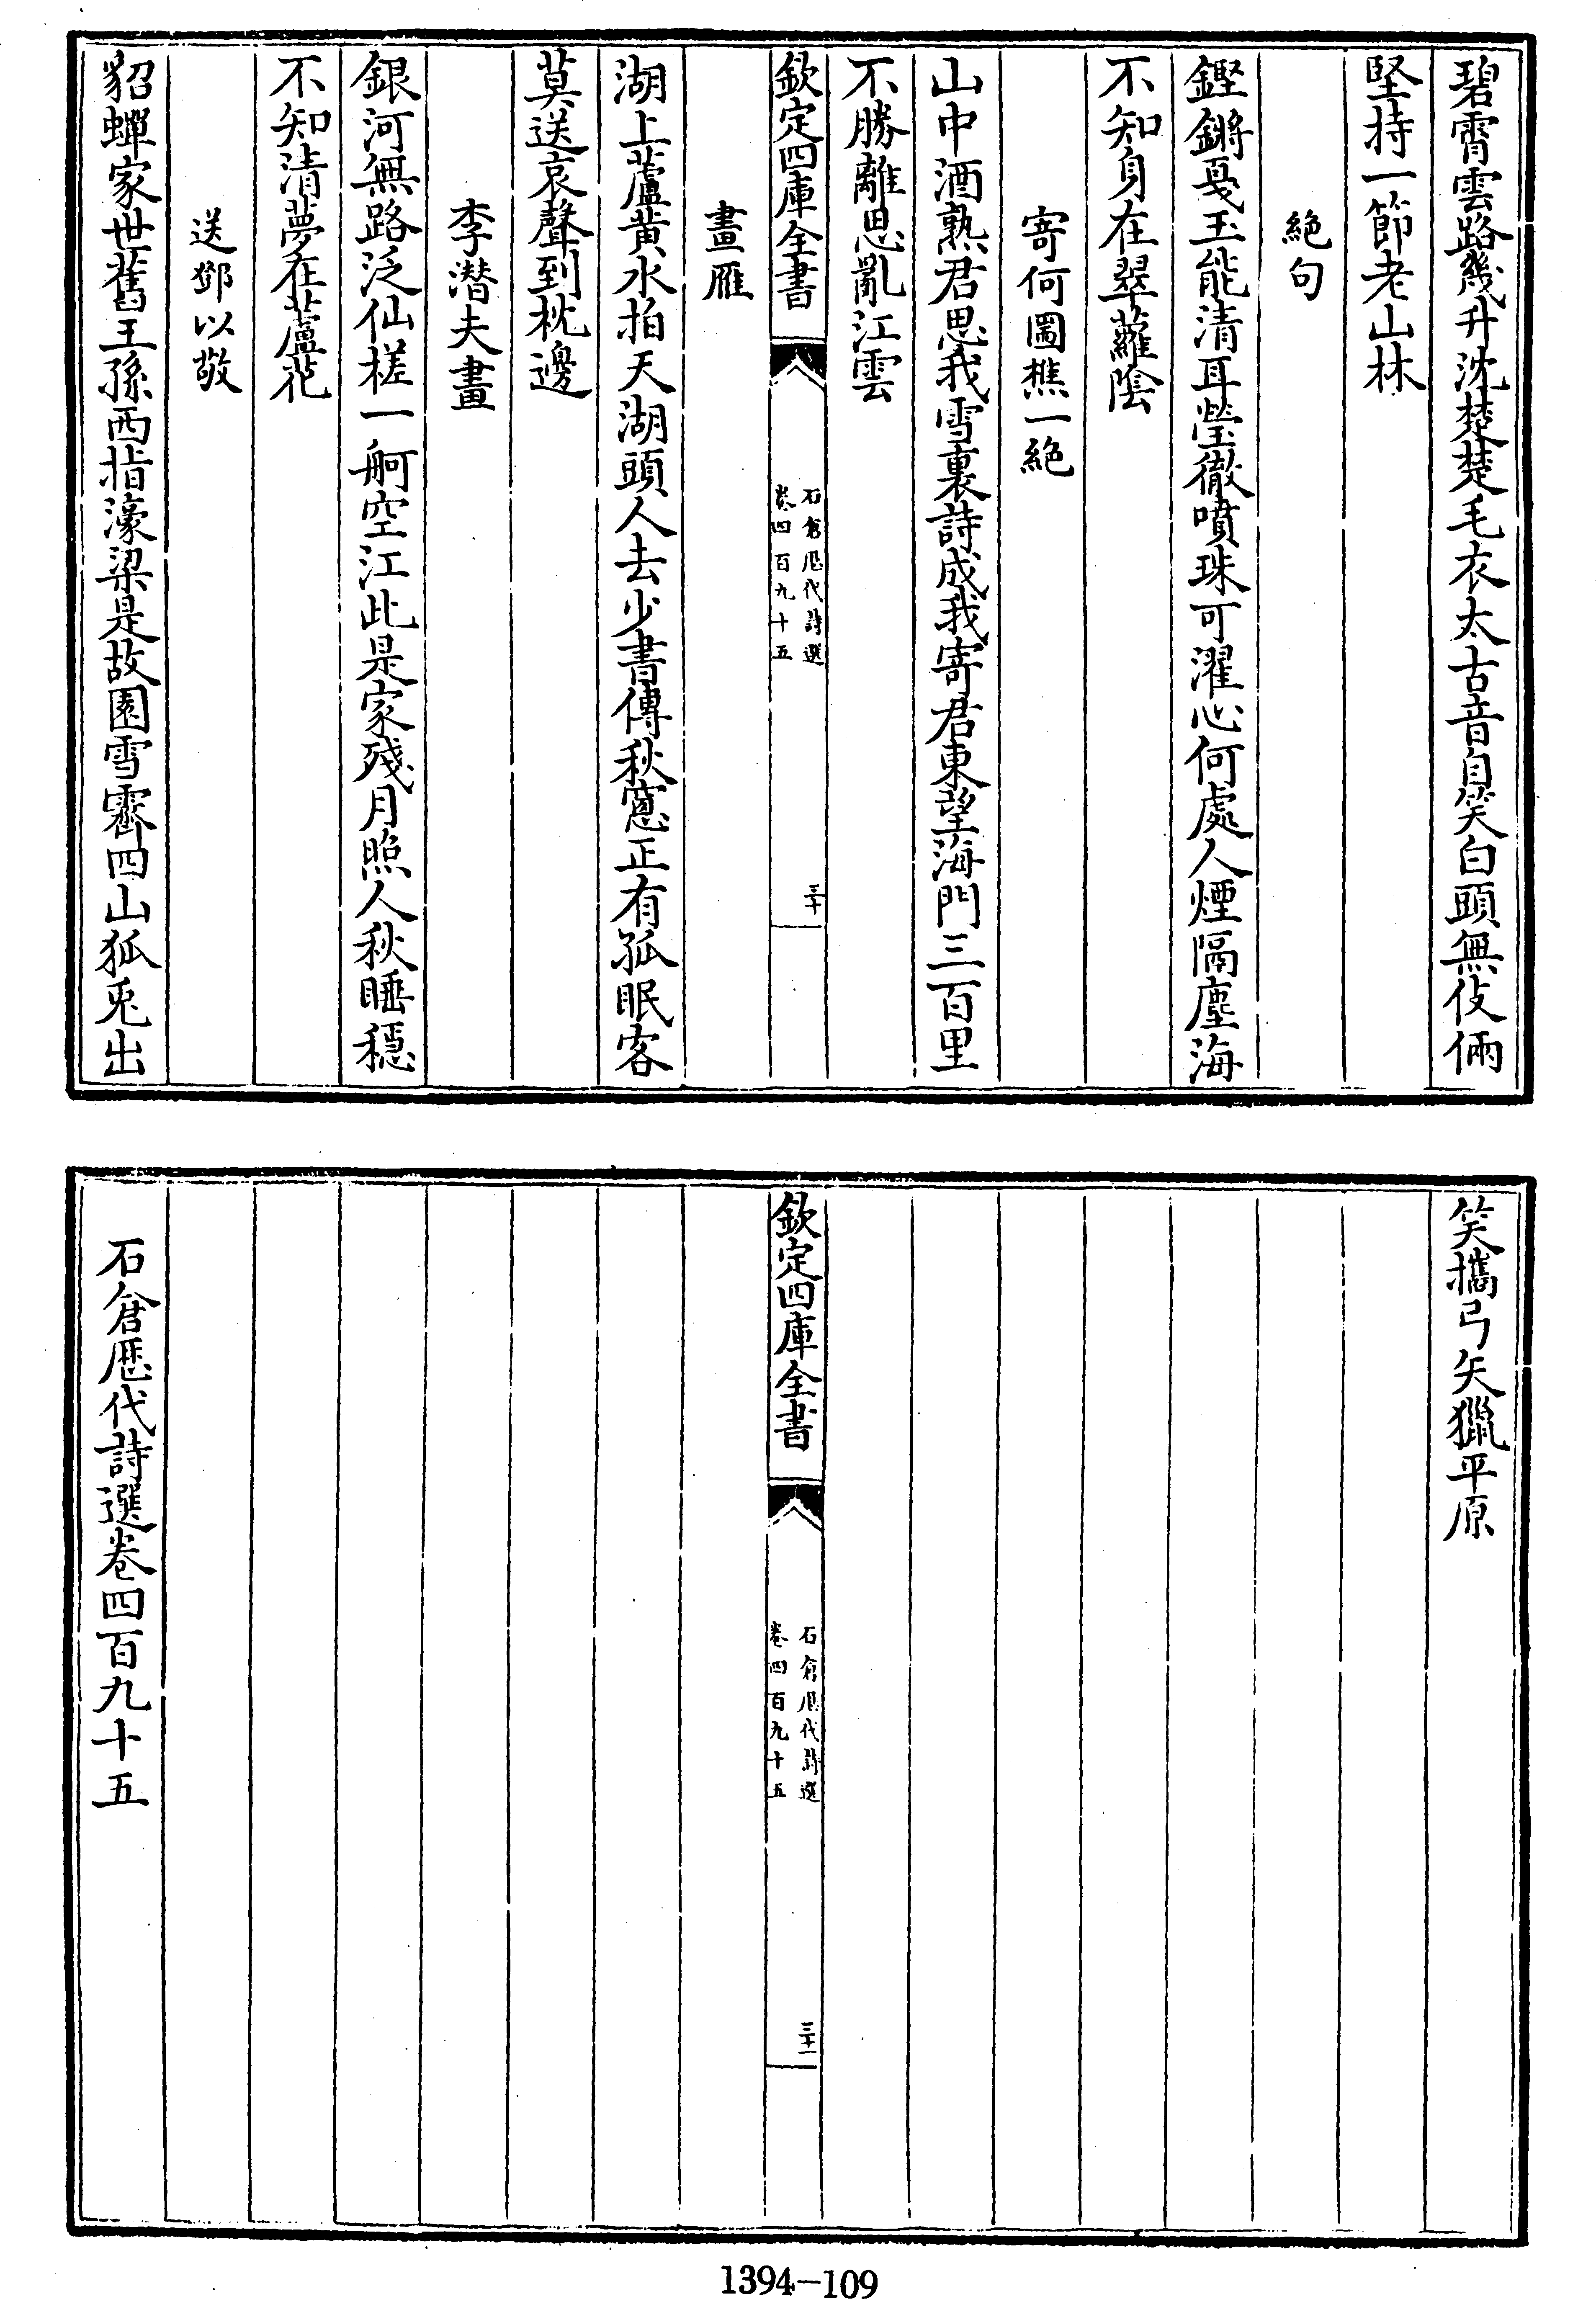 碧霄雲路幾升沈楚楚毛衣太古音自笑白頭無伎倆
堅持一節老山林
絕句
鏗鏘戛玉能清耳瑩徹噴珠可濯心何處人煙隔塵海
不知身在翠蘿陰
寄何圖樵一絕
山中酒熟君思我雪裏詩成我寄君東望海門三百里
不勝離思亂江雲
欽定四庫全書
石倉歷代詩選
卷四百九十五
三十
畫雁
湖上蘆黄水拍天湖頭人去少書傳秋窻正有孤眠客
莫送哀聲到枕邊
李潛夫畫
銀河無路泛仙槎一舸空江此是家殘月照人秋睡穩
不知清夢在蘆花
送鄧以敬
貂蟬家世舊王孫西指濠梁是故園雪霽四山狐兎出
笑攜弓矢獵平原
欽定四庫全書
石倉歷代詩選
卷四百九十五
三十一
石倉歷代詩選卷四百九十五
1394-109